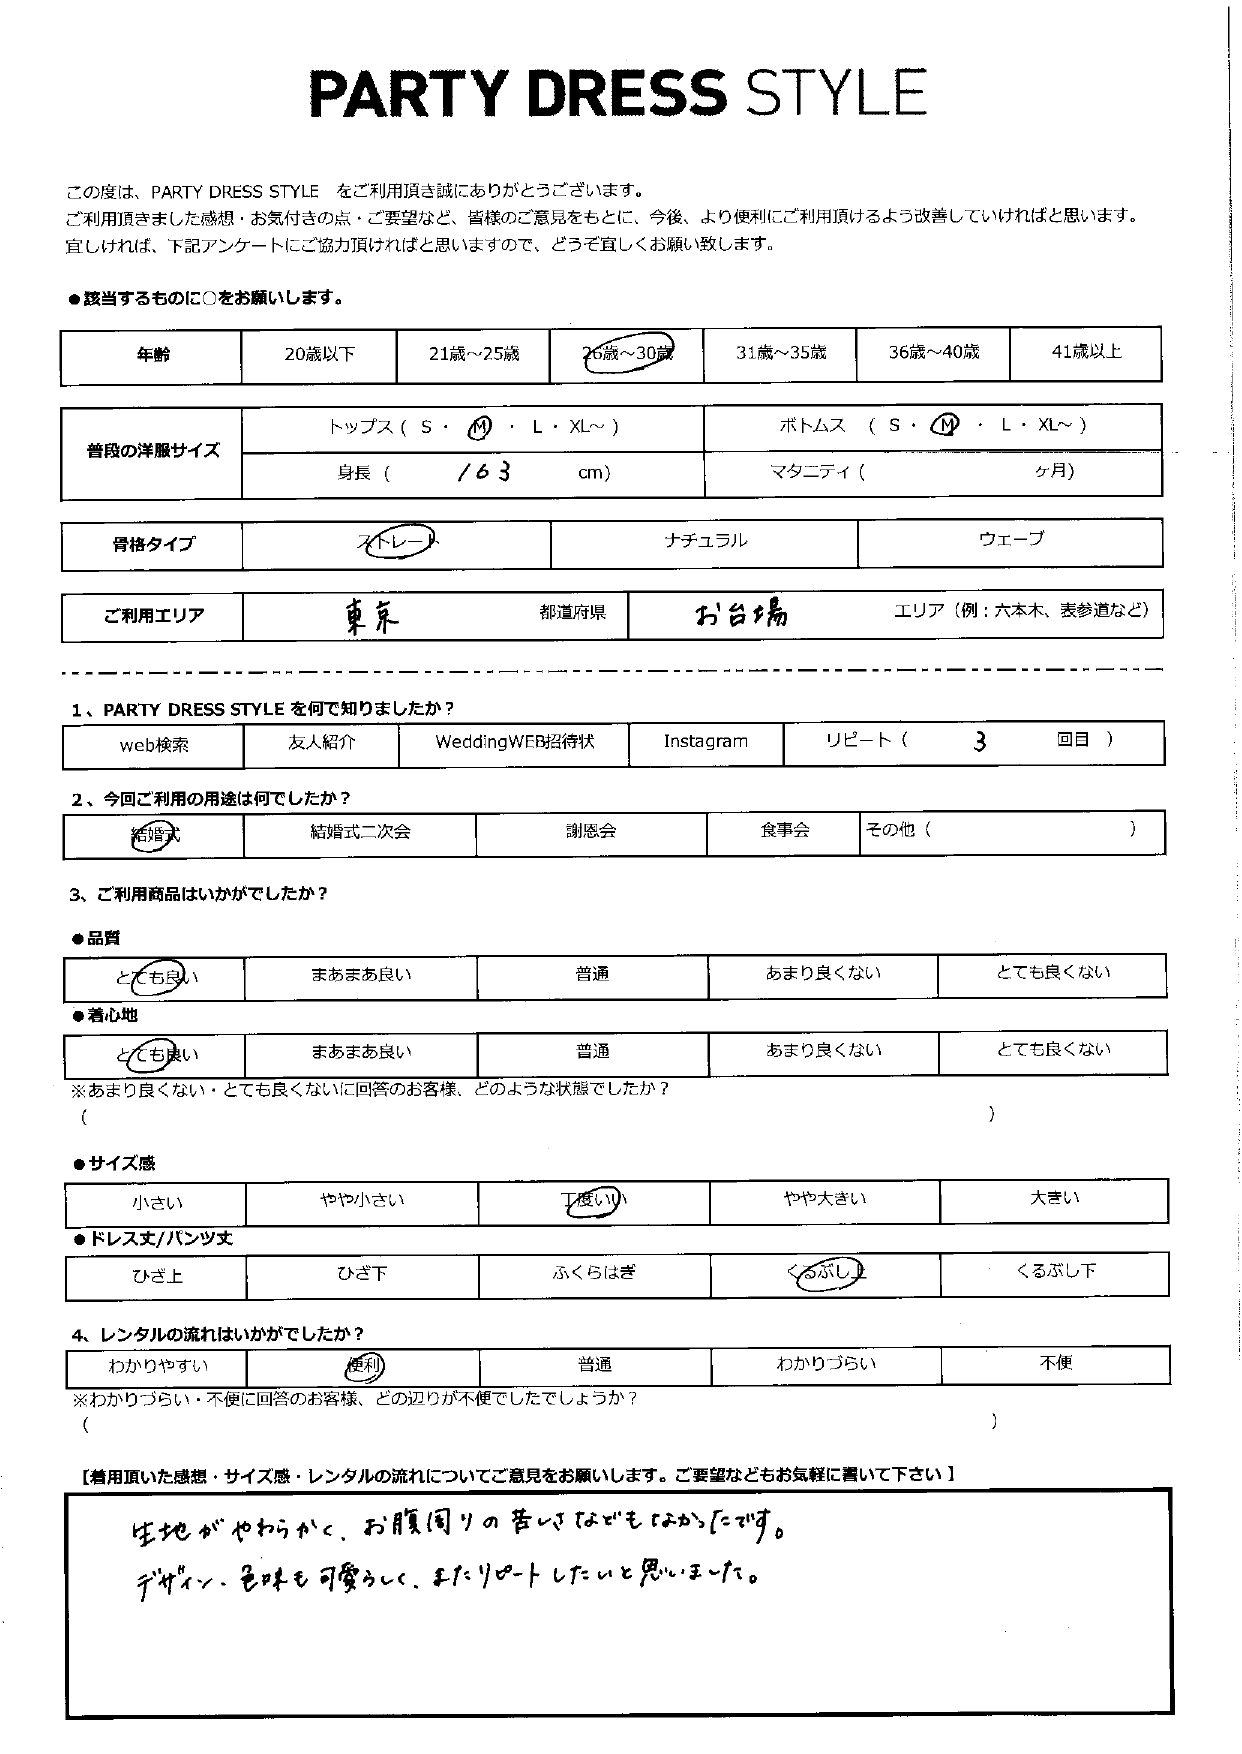 PARTY DRESS STYLE
この度は、PARTY DRESS STYLE をご利用頂き誠にありがとうございます。
ご利用頂きました感想・お気付きの点・ご要望など、皆様のご意見をもとに、今後、より便利にご利用頂けるよう改善していければと思います。
宜しければ、下記アンケートにご協力頂ければと思いますので、どうぞ宜しくお願い致します。
●該当するものに○をお願いします。
年齢 20歳以下 21歳～25歳 26歳～30歳 31歳～35歳 36歳～40歳 41歳以上
普段の洋服サイズ トップス ( S ・ M ・ L ・ XL～ ) ボトムス ( S ・ M ・ L ・ XL～ )
身長 ( 163 cm) マタニティ ( ヶ月)
骨格タイプ ストレート ナチュラル ウェーブ
ご利用エリア 東京 都道府県 お台場 エリア（例：六本木、表参道など）
1、PARTY DRESS STYLE を何で知りましたか？
web検索 友人紹介 WeddingWEB招待状 Instagram リピート ( 3 回目 )
2、今回ご利用の用途は何でしたか？
結婚式 結婚式二次会 謝恩会 食事会 その他 ( )
3、ご利用商品はいかがでしたか？
●品質
とても良い まあまあ良い 普通 あまり良くない とても良くない
●着心地
とても良い まあまあ良い 普通 あまり良くない とても良くない
※あまり良くない・とても良くないに回答のお客様、どのような状態でしたか？
( )
●サイズ感
小さい やや小さい 丁度いい やや大きい 大きい
●ドレス丈/パンツ丈
ひざ上 ひざ下 ふくらはぎ くるぶし上 くるぶし下
4、レンタルの流れはいかがでしたか？
わかりやすい 便利 普通 わかりづらい 不便
※わかりづらい・不便に回答のお客様、どの辺りが不便でしたでしょうか？
( )
【着用頂いた感想・サイズ感・レンタルの流れについてご意見をお願いします。ご要望などもお気軽に書いて下さい】
生地がやわらかく、お腹周りの苦しさなどもなかったです。
デザイン・色味も可愛らしく、またリピートしたいと思いました。